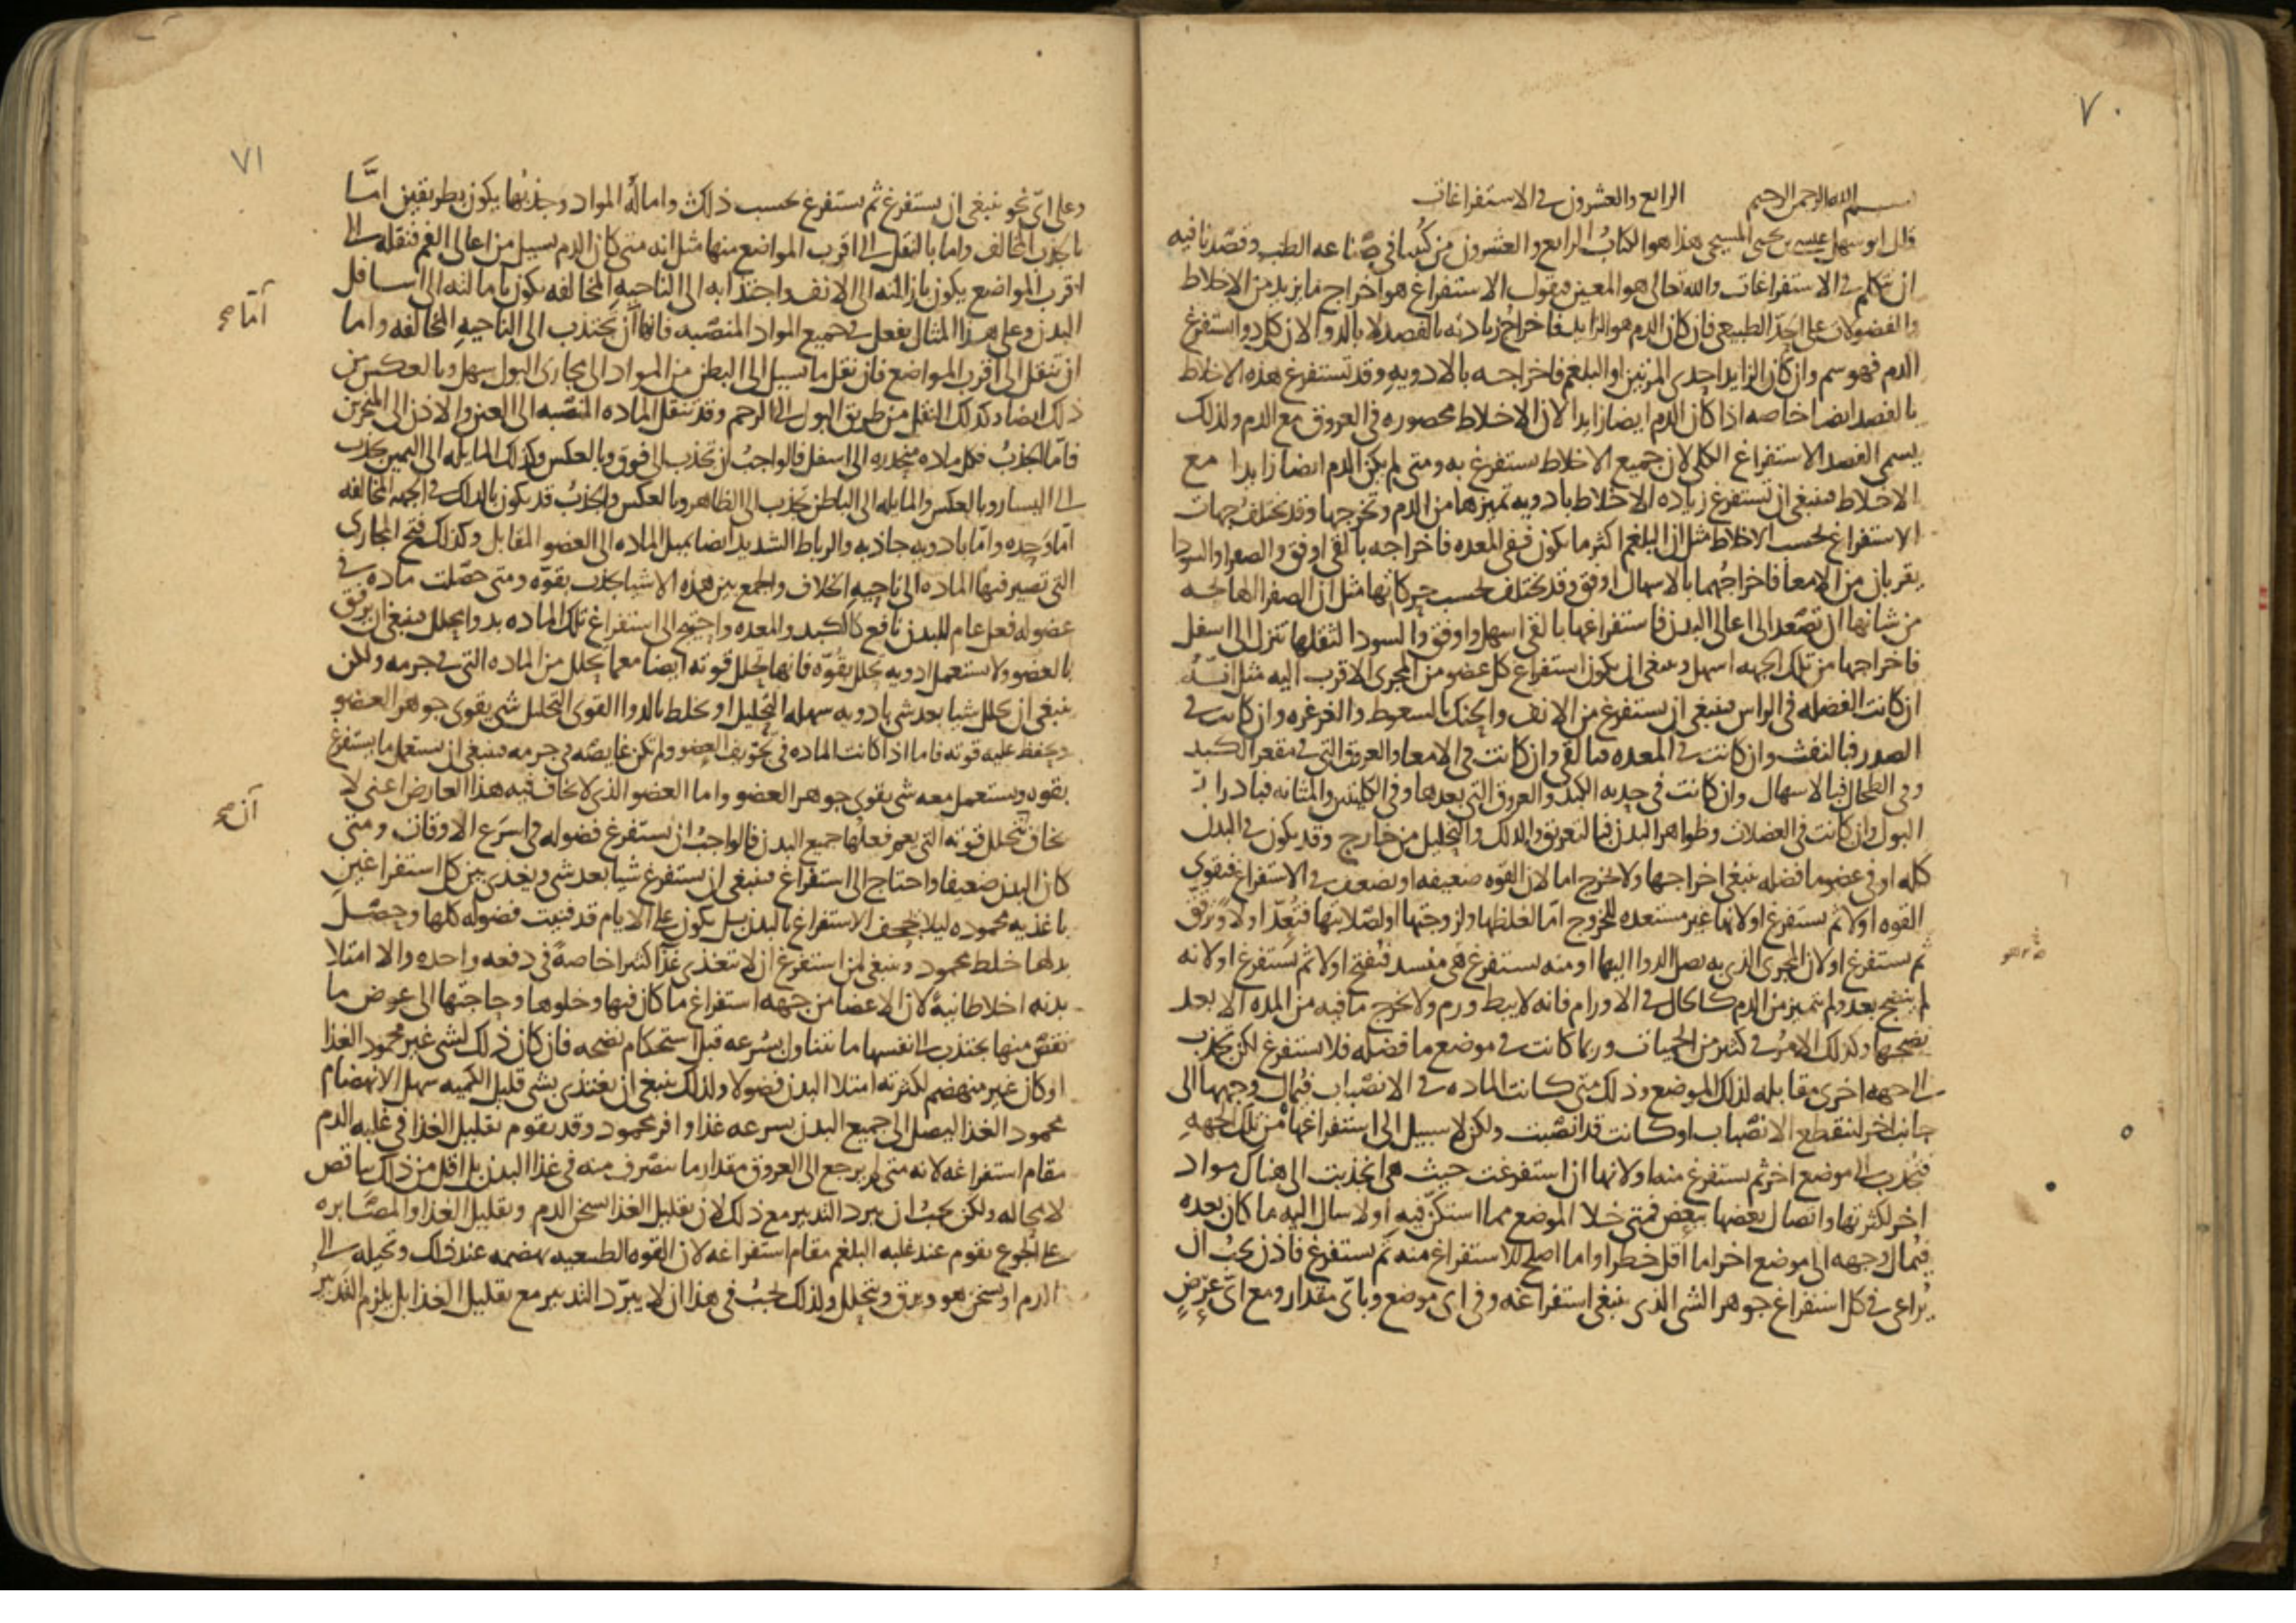 ٧٠
بسم الله الرحمن الرحيم الرابع والعشرون في الاستفراغات
قال ابو سهل عيسى بن يحيى المسيحي هذا هو الكتاب الرابع والعشرون من كتبنا في صناعه الطب وقصدنا فيه
ان نتكلم في الاستفراغات والله تعالى هو المعين فنقول الاستفراغ هو اخراج ما يزيد من الاخلاط
والفضولات على الحد الطبيعي فان كان الدم هو الزايد فاخراج زيادته بالفصد لا بالدوا لان كل دوا استفرغ
الدم فهو سم وان كان الزايد احدى المرتين او البلغم فاخراجه بالادويه وقد تستفرغ هذه الاخلاط
بالفصد ايضا خاصه اذا كان الدم ايضا زايدا لان الاخلاط محصوره في العروق مع الدم ولذلك
يسمى الفصد الاستفراغ الكلي لان جميع الاخلاط تستفرغ به ومتى لم يكن الدم ايضا زايدا مع
الاخلاط فينبغي ان تستفرغ زياده الاخلاط بادويه تميزها من الدم وتخرجها وقد تختلف جهات
الاستفراغ بحسب الاخلاط مثل ان البلغم اكثر ما يكون ففي المعده فاخراجه بالقي اوفق والصفرا والسودا
يقربان من الامعا فاخراجهما بالاسهال اوفق وقد تختلف بحسب حركاتها مثل ان الصفرا الهايجه
من شانها ان تصعد الى اعالي البدن فاستفراغها بالقي اسهل واوفق والسودا لثقلها تنزل الى اسفل
فاخراجها من تلك الجهه اسهل وينبغي ان يكون استفراغ كل عضو من المجرى الاقرب اليه مثل انه
ان كانت الفضله في الراس فينبغي ان يستفرغ من الانف والحنك بالسعوط والغرغره وان كانت في
الصدر فبالنفث وان كانت في المعده فبالقي وان كانت في الامعا والعروق التي في مقعر الكبد
وفي الطحال فبالاسهال وان كانت في حدبه الكبد والعروق التي بعدها وفي الكليتين والمثانه فبادرار
البول وان كانت في العضلات وظواهر البدن فبالتعريق والدلك والتحليل من خارج وقد يكون في البدن
كله او في عضو ما فضله ينبغي اخراجها ولا تخرج اما لان القوه ضعيفه او تضعف في الاستفراغ فتقوى
القوه اولا ثم يستفرغ او لانها غير مستعده للخروج اما لغلظها ولزوجتها او لصلابتها فتعد اولا وترقق
ثم يستفرغ او لان المجرى الذي به يصل الدوا اليها او منه يستفرغ هي منسد فتفتح اولا ثم يستفرغ او لانه
لم ينضج بعد ولم يتميز من الدم كالحال في الاورام فانه لا يبط ورم ولا يخرج ما فيه من المده الا بعد
نضجها وكذلك الامر في كثير من الحميات وربما كانت في موضع ما فضله فلا يستفرغ لكن تجذب
الى جهه اخرى مقابله لذلك الموضع وذلك متى كانت الماده في الانصباب فيمال وجهها الى
جانب اخر لينقطع الانصباب او كانت قد انصبت ولكن لا سبيل الى استفراغها من تلك الجهه
فتجذب الى موضع اخر ثم يستفرغ منه او لانها ان استفرغت حيث هي انجذبت الى هناك مواد
اخر لكثرتها واتصال بعضها ببعض فمتى خلا الموضع مما استكن فيه اولا سال اليه ما كان بعده
فيمال وجهه الى موضع اخر اما اقل خطرا واما اصلح للاستفراغ منه ثم يستفرغ فاذن يجب ان
يراعى في كل استفراغ جوهر الشي الذي ينبغي استفراغه وفي اي موضع وباي مقدار ومع اي عرض
٧١
وعلى اي نحو ينبغي ان يستفرغ ثم يستفرغ بحسب ذلك واماله المواد وجذبها يكون بطريقين اما
بالجذب المخالف واما بالنقل الى اقرب المواضع منها مثل انه متى كان الدم يسيل من اعالي الفم فنقله الى
اقرب المواضع يكون بازالته الى الانف واجتذابه الى الناحيه المخالفه يكون بامالته الى اسافل
البدن وعلى هذا المثال يفعل في جميع المواد المنصبه فانها ان تجتذب الى الناحيه المخالفه واما
اما صح
ان تنقل الى اقرب المواضع فان نقل ما يسيل الى البطن من المواد الى مجاري البول سهل وبالعكس من
ذلك ايضا وكذلك النقل من طريق البول الى الرحم وقد تنقل الماده المنصبه الى العين والاذن الى المنخرين
فاما الجذب فكل ماده منحدره الى اسفل فالواجب ان تجذب الى فوق وبالعكس وكذلك المايله الى اليمين تجذب
الى اليسار وبالعكس والمايله الى الباطن تجذب الى الظاهر وبالعكس والجذب قد يكون بالدلك في الجهه المخالفه
اما وحده واما بادويه جاذبه والرباط الشديد ايضا يميل الماده الى العضو المقابل وكذلك فتح المجاري
التي تصير فيها الماده الى ناحيه الخلاف والجمع بين هذه الاشيا يجذب بقوه ومتى حصلت ماده في
عضو له فعل عام للبدن نافع كالكبد والمعده واحتيج الى استفراغ تلك الماده بدوا يحلل فينبغي ان يرفق
بالعضو ولا يستعمل ادويه تحلل بقوه فانها تحلل قوته ايضا مع ما يحلل من الماده التي في جرمه ولكن
ينبغي ان يحلل شيا بعد شي بادويه سهله التحليل او يخلط بالدوا القوي التحليل شي يقوي جوهر العضو
ويحفظ عليه قوته فاما اذا كانت الماده في تجويف العضو ولم تكن غايصه في جرمه فينبغي ان يستعمل ما يستفرغ
بقوه ويستعمل معه شي يقوي جوهر العضو واما العضو الذي لا يخاف فيه هذا العارض اعني لا
ان صح
يخاف تحلل قوته التي يعم فعلها جميع البدن فالواجب ان يستفرغ فضوله في اسرع الاوقات ومتى
كان البدن ضعيفا واحتاج الى استفراغ فينبغي ان يستفرغ شيا بعد شي ويغذى بين كل استفراغين
باغذيه محموده ليلا يجحف الاستفراغ بالبدن بل يكون على الايام قد فنيت فضوله كلها وحصل
بدلها خلط محمود وينبغي لمن استفرغ ان لا يتغذى غذا كثيرا خاصة في دفعه واحده والا امتلا
بدنه اخلاطا نية لان الاعضا من جهه استفراغ ما كان فيها وخلوها وحاجتها الى عوض ما
نقص منها تجتذب الى انفسها ما تتناول بسرعه قبل استحكام نضجه فان كان ذلك لشي غير محمود الغذا
او كان غير منهضم لكثرته امتلا البدن فضولا ولذلك ينبغي ان يغتذي بشي قليل الكميه سهل الانهضام
محمود الغذا ليصل الى جميع البدن بسرعه غذا وافر محمود وقد يقوم تقليل الغذا في غلبه الدم
مقام استفراغه لانه متى لم يرجع الى العروق مقدار ما ينصرف منه في غذا البدن بل اقل من ذلك تناقص
لا محاله ولكن يجب ان يبرد التدبير مع ذلك لان تقليل الغذا يسخن الدم وتقليل الغذا والمصابره
على الجوع يقوم عند غلبه البلغم مقام استفراغه لان القوه الطبيعيه تهضمه عند ذلك وتحيله الى
الدم او يسخن هو ويرق ويتحلل ولذلك يجب في هذا ان لا يبرد التدبير مع تقليل الغذا بل يلزم التدبير